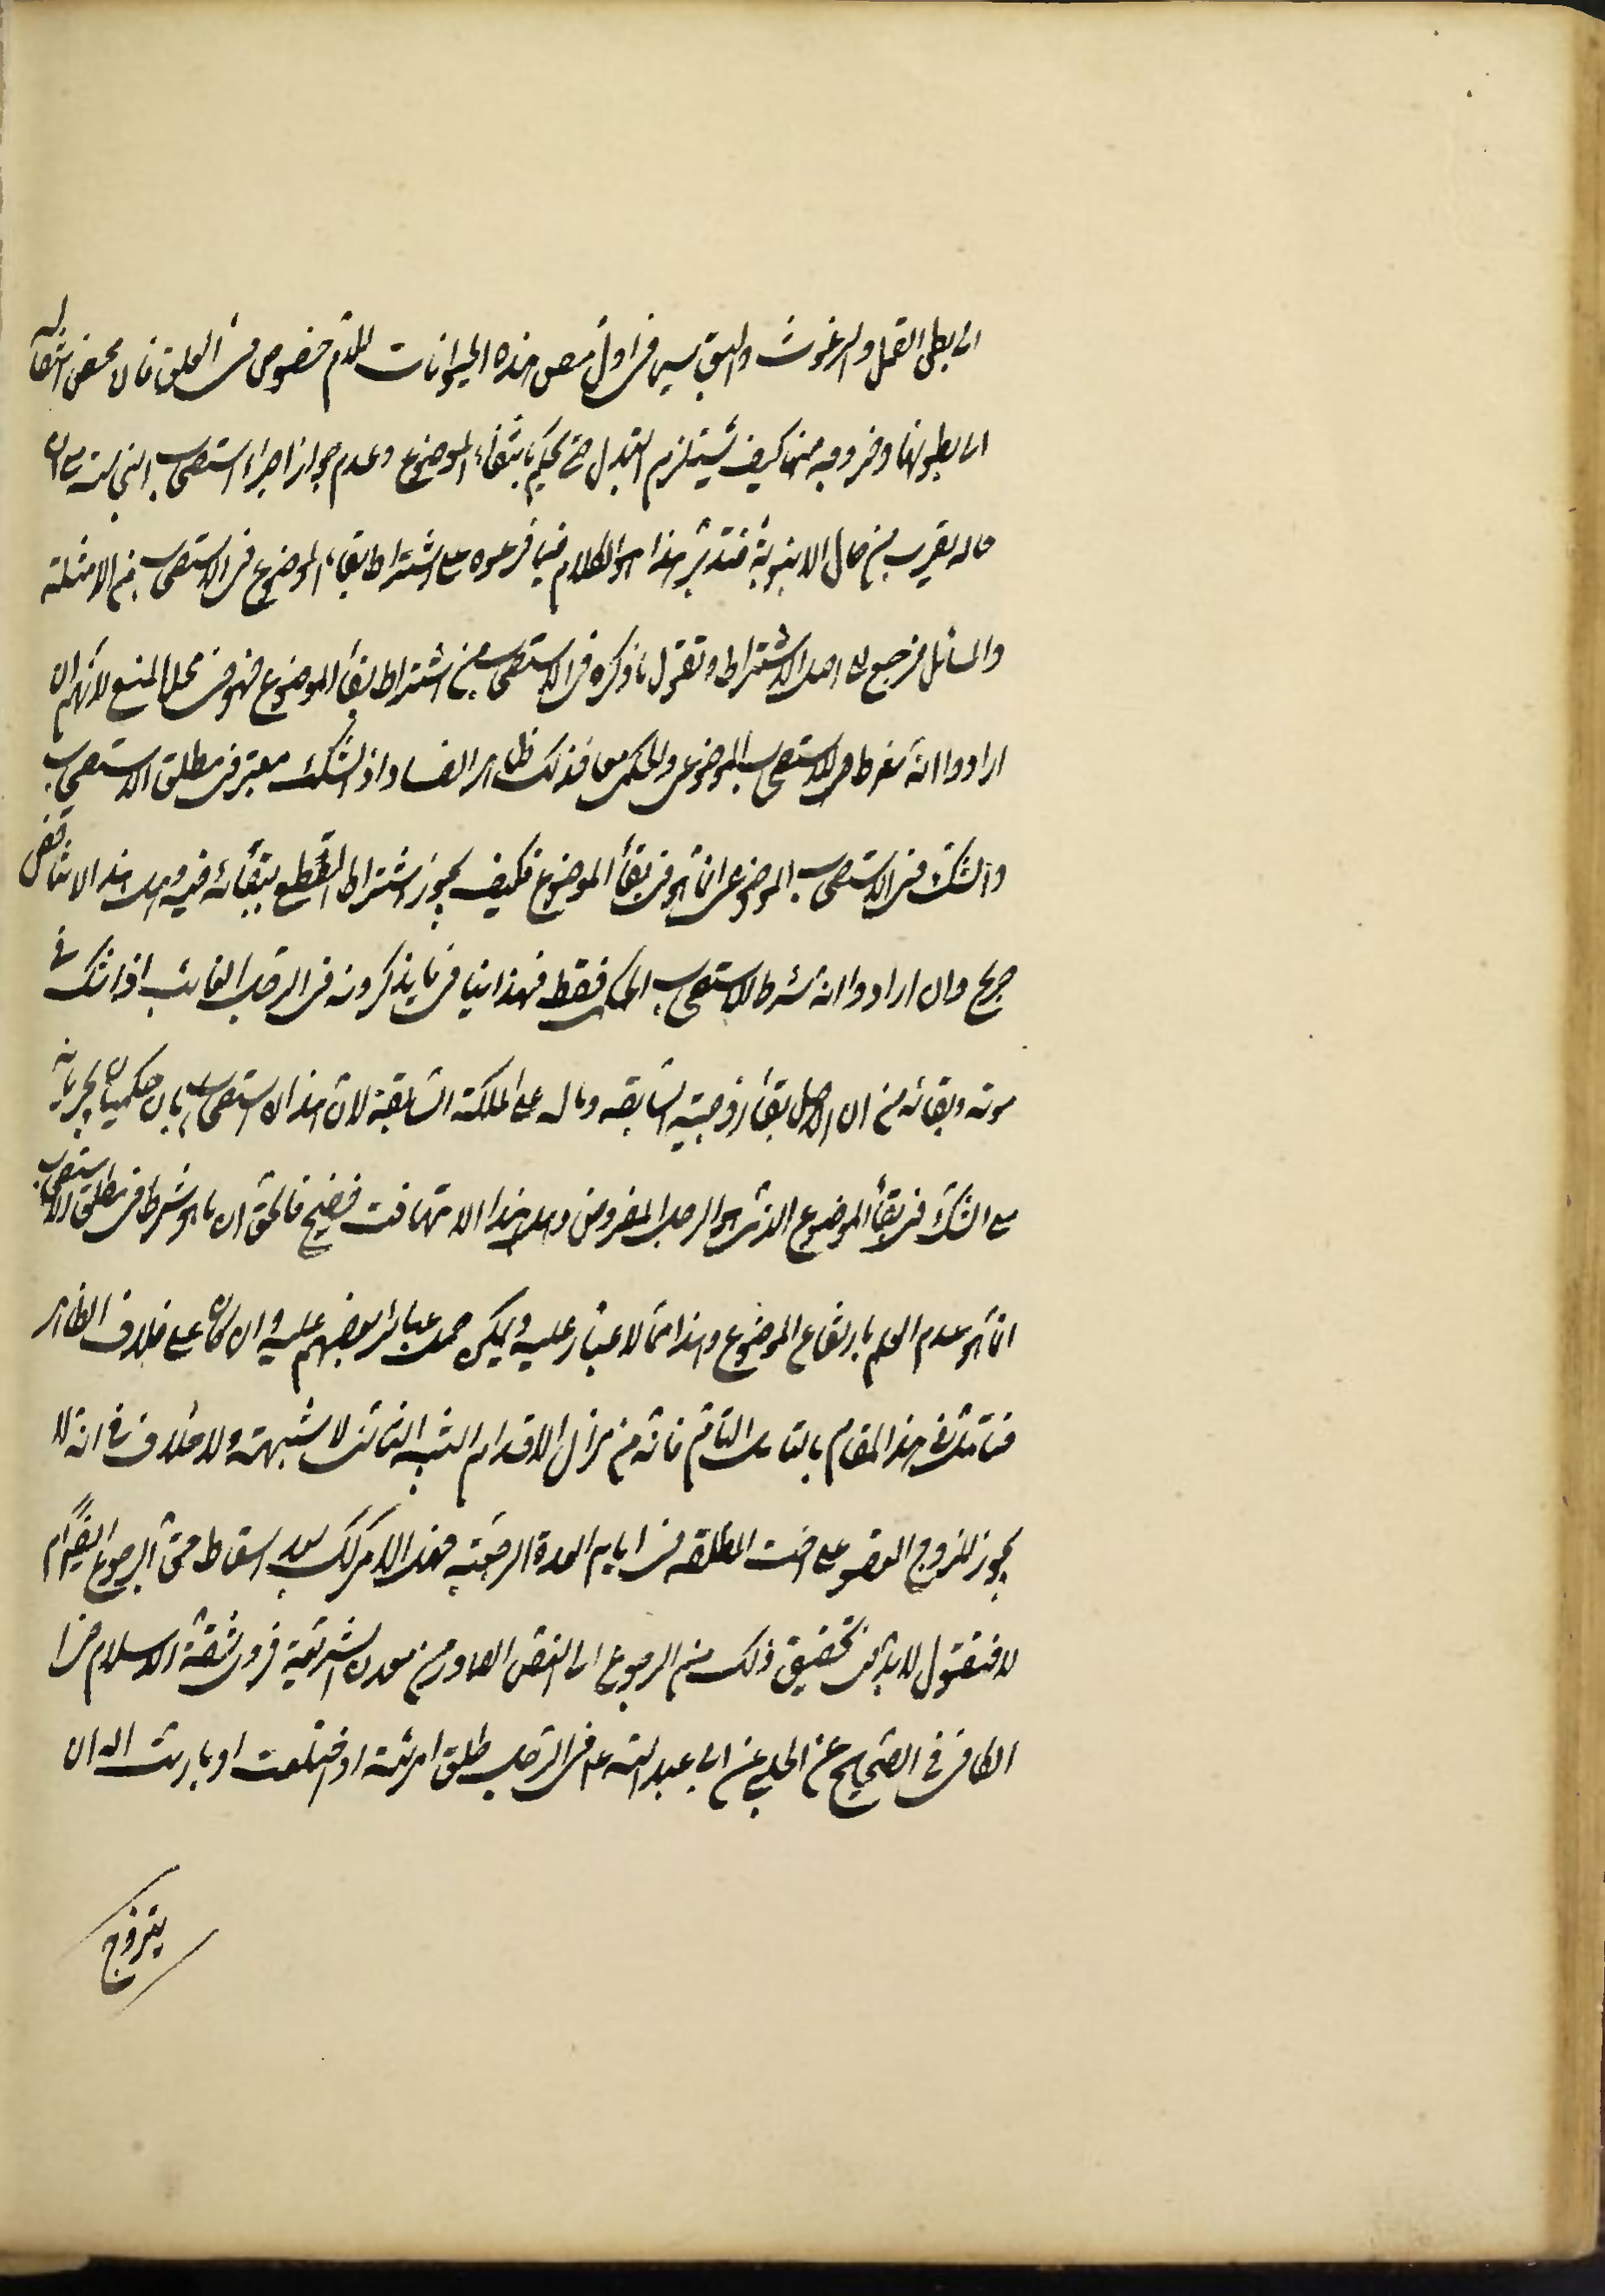 الى بطن القمل والبرغوث والبق سيما في اول مص هذه الحيوانات للدم خصوصا في العلق فان محض انتقاله
الى بطونها وخروجه منها كيف يستلزم التبدل حتى يحكم بانتفاء الموضوع وعدم جواز اجراء استصحاب النجاسة مع ان
حاله يقرب من حال الانبوبة فتدبر هذا هو الكلام فيما فرعوه على اشتراط بقاء الموضوع في الاستصحاب من الامثلة
والمسائل فنرجع الى اصل الاشتراط ونقول ما ذكره في الاستصحاب من اشتراط بقاء الموضوع فهو في محل المنع لانهم ان
ارادوا انه شرط في الاستصحاب الموضوعى والحكمى معا فذلك ظاهر الفساد اذ الشك معتبر في مطلق الاستصحاب
والشك في الاستصحاب الموضوعى انما هو في بقاء الموضوع فكيف يجوز اشتراط القطع ببقائه فيه وهل هذا الا تناقض
صريح وان ارادوا انه شرط الاستصحاب الحكمى فقط فهذا ينافى ما يذكرونه في الرجل الغائب اذا شك في
موته وبقائه من ان الاصل بقاء زوجيته السابقه وماله على الملكة السابقة لان هذا الاستصحاب بان حكميان يجريانه
مع الشك في بقاء الموضوع الذى هو الرجل المفروض وهل هذا الا تهافت فضيح فالحق ان ما هو شرط في مطلق الاستصحاب
انما هو عدم العلم بارتفاع الموضوع وهذا مما لا غبار عليه ويمكن حمل عبائر بعضهم عليه وان كان على خلاف الظاهر
فتامل في هذا المقام بالتامل التام فانه من مزال الاقدام التنبيه الثالث لا شبهة ولا خلاف في انه لا
يجوز للزوج العقد على اخت المطلقه في ايام العدة الرجعية فهذا الامر كك بعد اسقاط حق الرجوع ايضا ام
لا فنقول لا بد في تحقيق ذلك من الرجوع الى النص الصادر من معدن الشريعة فروى ثقة الاسلام في
الكافى في الصحيح عن الحلبي عن ابى عبد الله ع في الرجل طلق امرئته او اختلعت او بارئت اله ان
يتزوج